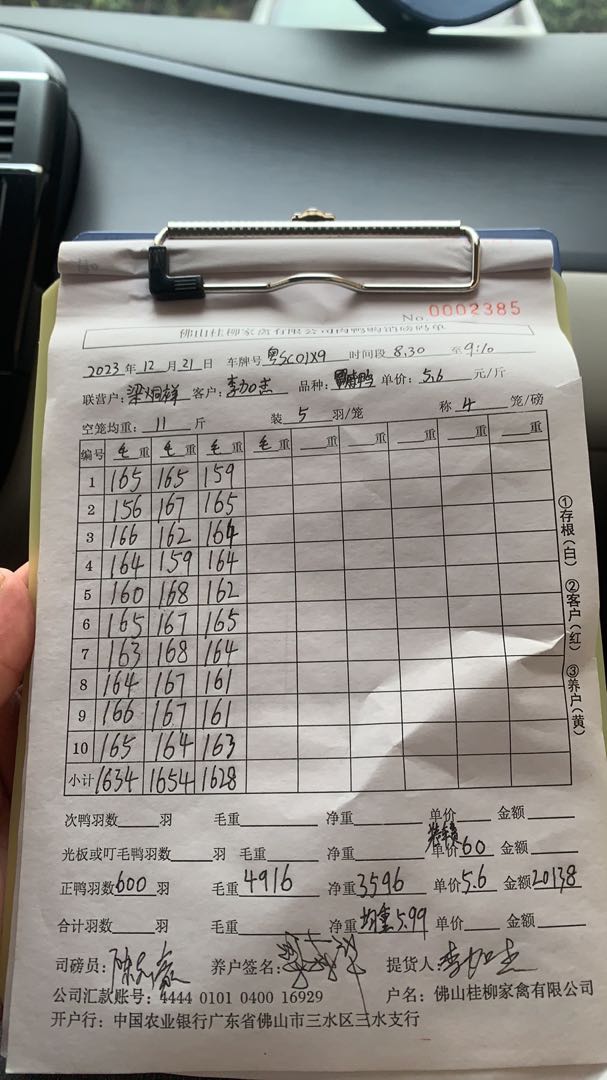 No. 0002385
佛山桂柳家禽有限公司肉鸭购销磅码单
2023年12月21日 车牌号 粤SC01X9 时间段 8.30 至 9:10
联营户: 梁炯祥 客户: 李加志 品种: 单价: 5.6 元/斤
空笼均重: 11 斤 装 5 羽/笼 称 4 笼/磅
编号 毛重 毛重 毛重 毛重 重 重 重 重 重 重
1 165 165 159
2 156 167 165
3 166 162 164
4 164 159 164
5 160 168 162
6 165 167 165
7 163 168 164
8 164 167 161
9 166 167 161
10 165 164 163
小计 1634 1654 1628
①存根(白) ②客户(红) ③养户(黄)
次鸭羽数 羽 毛重 净重 单价 金额
光板或叮毛鸭羽数 羽 毛重 净重 单价 60 金额
正鸭羽数 600 羽 毛重 4916 净重 3596 单价 5.6 金额 20138
合计羽数 羽 毛重 净重 均重 5.99 单价 金额
司磅员: 养户签名: 提货人: 李加志
公司汇款账号: 4444 0101 0400 16929 户名: 佛山桂柳家禽有限公司
开户行: 中国农业银行广东省佛山市三水区三水支行